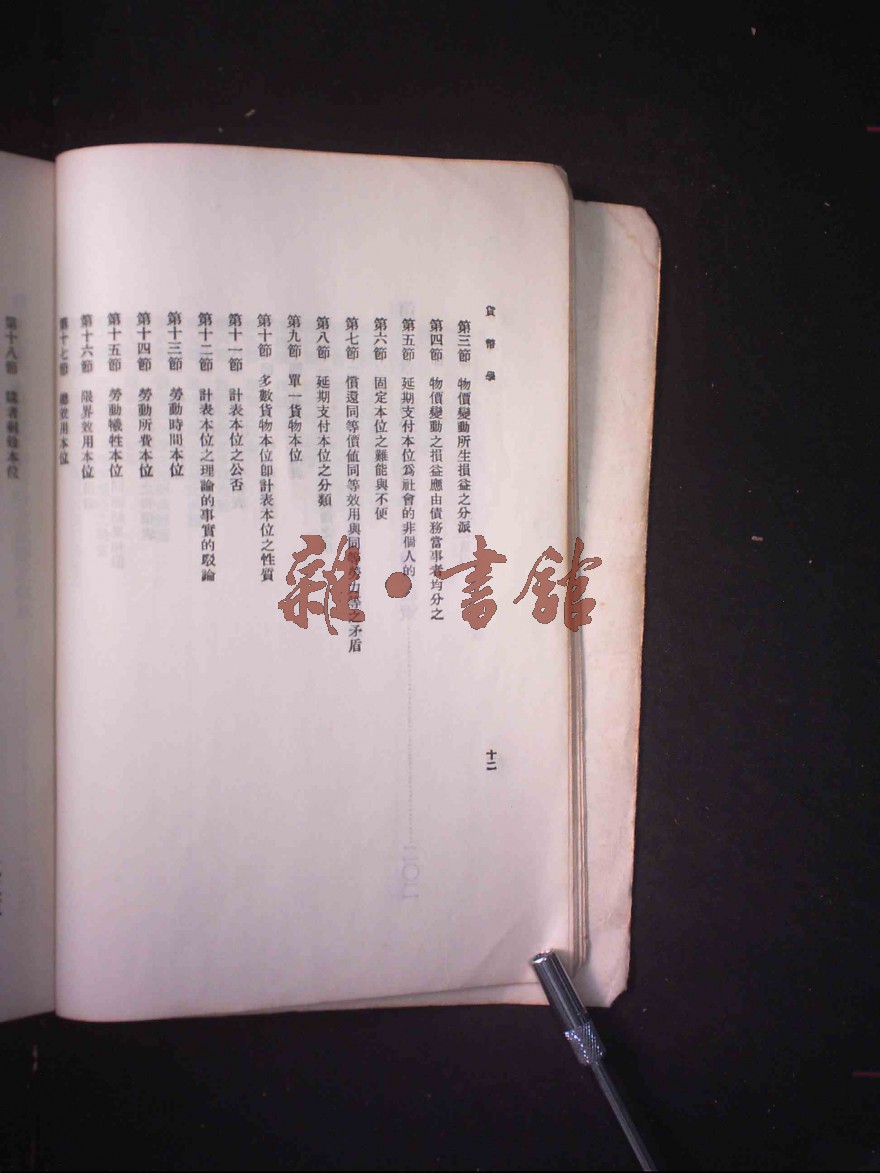 貨幣學
第三節 物價變動所生損益之分派
第四節 物價變動之損益應由債務當事者均分之
第五節 延期支付本位爲社會的非個人的
第六節 固定本位之難能與不便
第七節 償還同等價値同等效用與同等勞力等之矛盾
第八節 延期支付本位之分類
第九節 單一貨物本位
第十節 多數貨物本位卽計表本位之性質
第十一節 計表本位之公否
第十二節 計表本位之理論的事實的駁論
第十三節 勞動時間本位
第十四節 勞動所費本位
第十五節 勞動犧牲本位
第十六節 限界效用本位
第十七節 總效用本位
十二
第十八節
雜·書館